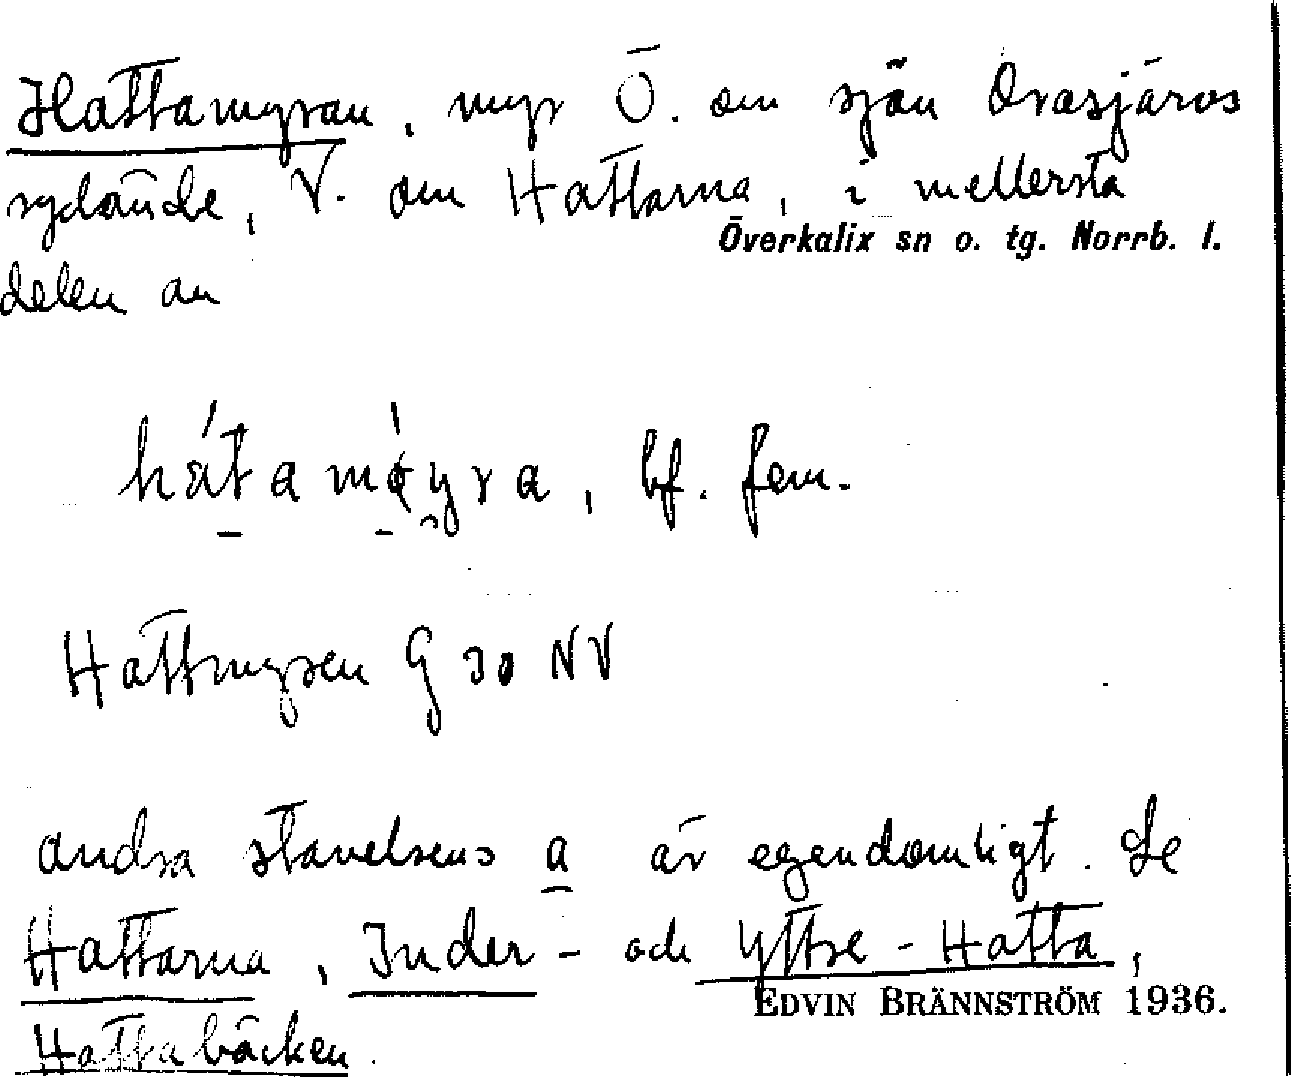 Hattamyran, myr Ö. om sjön Orasjärvs
sydände, V. om Hattarna, i mellersta
Överkalix sn o. tg. Norrb. l.
delen av
bf. fem.
Hattmyren G 30 NV
andra stavelsens a är egendomligt. Se
Hattarna, Inder- och Yttre-Hatta,
EDVIN BRÄNNSTRÖM 1936.
Hattabäcken.